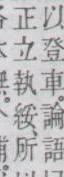 以登車。論語
正立執綏、所
本無。